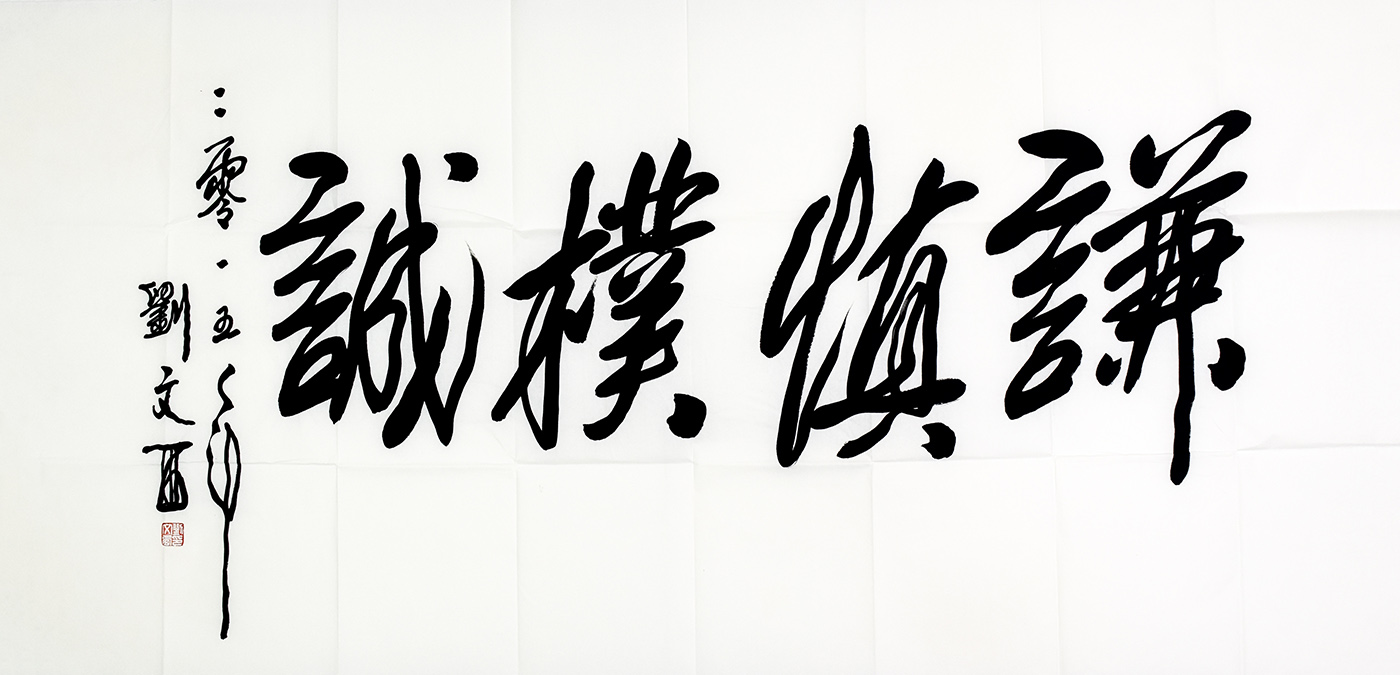 謙慎樸誠
二零一五年
劉文西